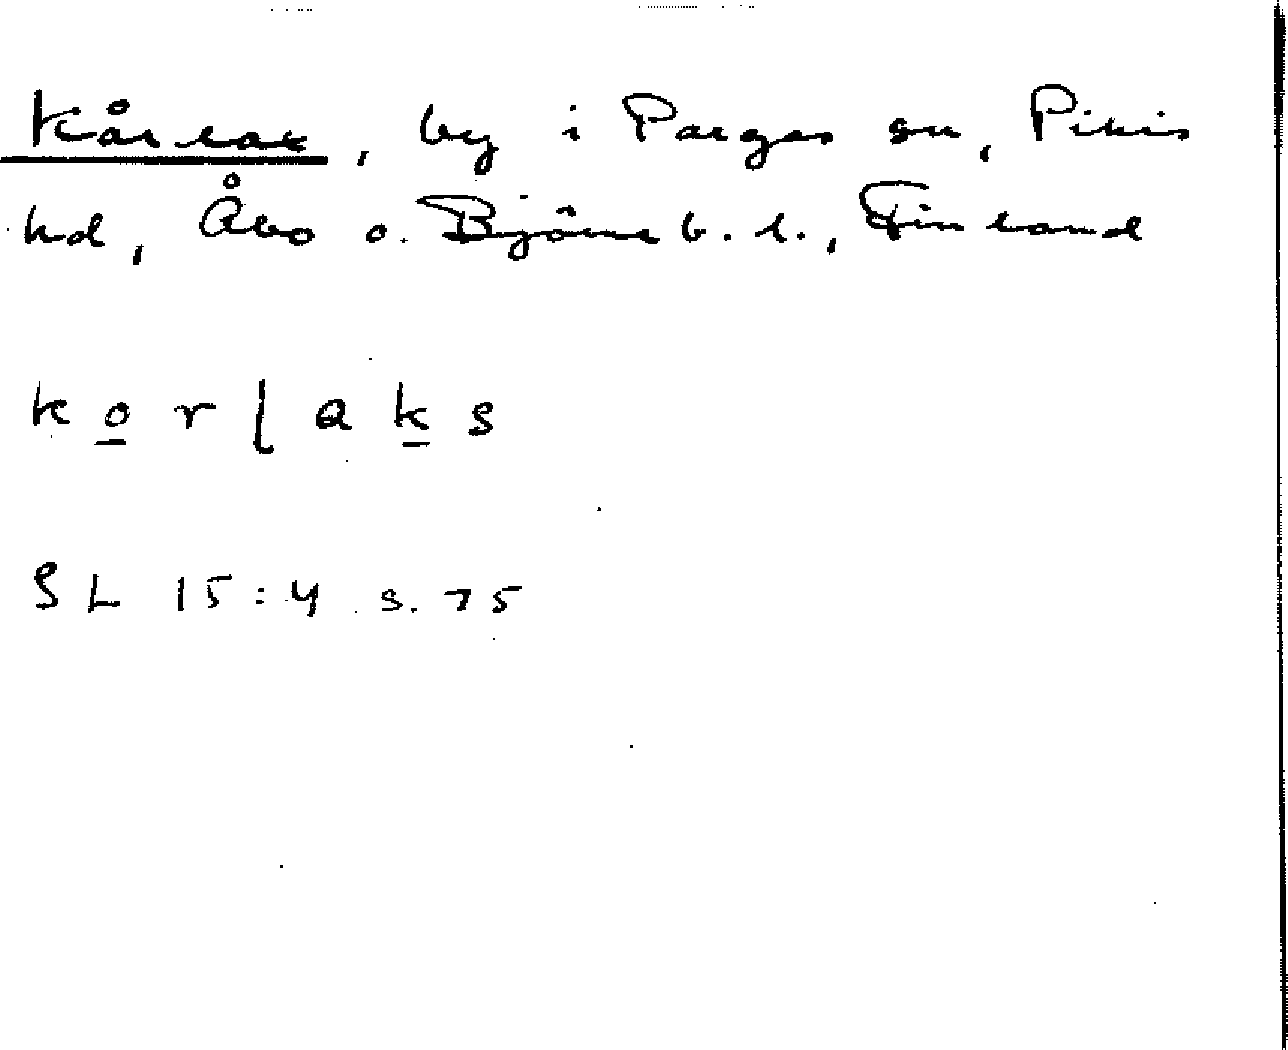 Kårlax, by i Pargas sn, Pikis
hd, Åbo o. Björneb. l., Finland
k o r l a k s
SL 15:4 s. 75